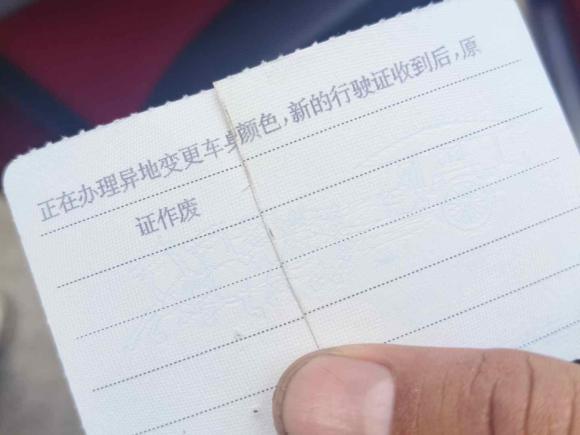 正在办理异地变更车身颜色,新的行驶证收到后,原
证作废